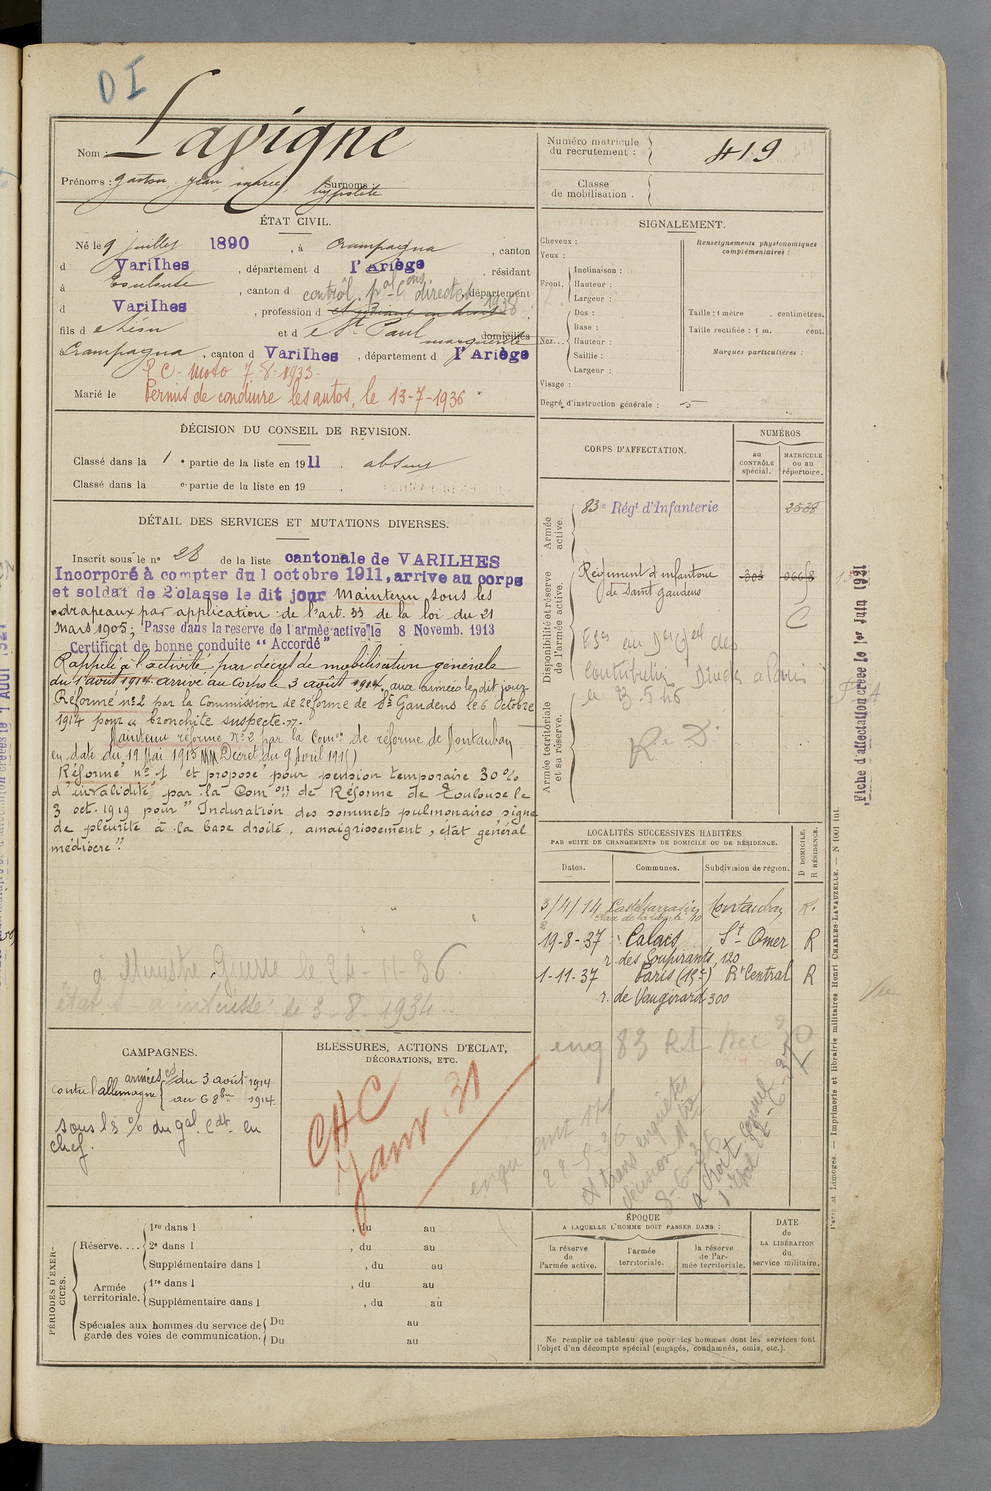 DI
Nom : Lavigne
Prénoms : gaston, jean, marie, hypolite Surnoms :
Numéro matricule du recrutement : 419
Classe de mobilisation .
ÉTAT CIVIL.
Né le 9 juillet 1890, à Crampagna, canton
d Varilhes, département d l'Ariège, résidant
à Toulouse, canton d , département
d Varilhes, profession d étudiant en droit
contrôl. pal Cons directes 1938
fils d e Léon et d e St Paul marguerite domiciliés
Crampagna, canton d Varilhes, département d l'Ariège
P C - Moto 7-8-1933-
Marié le Permis de conduire les autos, le 13-7-1936
SIGNALEMENT.
Cheveux :
Yeux :
Front. Inclinaison :
Hauteur :
Largeur :
Nez... Dos :
Base :
Hauteur :
Saillie :
Largeur :
Visage :
Renseignements physionomiques complémentaires :
Taille : 1 mètre centimètres.
Taille rectifiée : 1 m. cent.
Marques particulières :
Degré d'instruction générale : 5
DÉCISION DU CONSEIL DE REVISION.
Classé dans la 1e partie de la liste en 1911. absent
Classé dans la e partie de la liste en 19 .
DÉTAIL DES SERVICES ET MUTATIONS DIVERSES.
Inscrit sous le no 28 de la liste cantonale de VARILHES
Incorporé à compter du 1 octobre 1911, arrive au corps
et soldat de 2e classe le dit jour Maintenu sous les
drapeaux par application de l'art. 33 de la loi du 21
Mars 1905; Passe dans la reserve de l'armée active le 8 Novemb. 1913
Certificat de bonne conduite "Accordé"
Rappelé à l'activité par décret de mobilisation générale
du 1 août 1914 arrivé au Corps le 3 août 1914, aux armées le dit jour
Réformé no 2 par la Commission de réforme de St Gaudens le 6 Octobre
1914 pour "bronchite suspecte."
Maintenu réformé No 2 par la Comon de réforme de Montauban
en date du 19 Mai 1915 (Décret du 9 avril 1915)
Réformé no 1 et proposé pour pension temporaire 30 %
d'invalidité par la Comon de Réforme de Toulouse le
3 oct. 1919 pour "Induration des sommets pulmonaires signe
de pleurite à la base droite, amaigrissement, état général
médiocre".
à Ministre Guerre le 24-11-36.
état à intéressé le 3-8-1934
CORPS D'AFFECTATION.
NUMÉROS
au CONTRÔLE spécial.
MATRICULE ou au répertoire.
Armée active.
83e Rég t d'Infanterie 2538
Disponibilité et réserve de l'armée active.
Régiment d'infanterie de Saint Gaudens
C
Armée territoriale et sa réserve.
R. D.
Fiche d'affectation créée le 1er Juin 1931
LOCALITÉS SUCCESSIVES HABITÉES
PAR SUITE DE CHANGEMENTS DE DOMICILE OU DE RÉSIDENCE.
Dates. Communes. Subdivision de région. D DOMICILE. R RÉSIDENCE.
3/4/14 Castelsarrasin Montauban R.
19-8-37 Calais St Omer R
r. des Soupirants, 120
1-11-37 Paris (15e) Rt Central R
r. de Vaugirard 300
Vu
CAMPAGNES.
Contre l'allemagne armées du 3 août 1914
au 6 8bre 1914.
sous ls % du gal cdt en
chef.
BLESSURES, ACTIONS D'ÉCLAT, DÉCORATIONS, ETC.
CHC
Janv 31
PÉRIODES D'EXERCICES.
Réserve.... 1re dans l , du au
2e dans l , du au
Supplémentaire dans l , du au
Armée territoriale. 1re dans l , du au
Supplémentaire dans l , du au
Spéciales aux hommes du service de garde des voies de communication. Du au
Du au
ÉPOQUE
A LAQUELLE L'HOMME DOIT PASSER DANS :
la réserve de l'armée active.
l'armée territoriale.
la réserve de l'armée territoriale.
DATE de LA LIBÉRATION du service militaire.
Ne remplir ce tableau que pour les hommes dont les services font
l'objet d'un décompte spécial (engagés, condamnés, omis, etc.).
Paris et Limoges. — Imprimerie et librairie militaires Henri CHARLES-LAVAUZELLE. — N 1001 int.